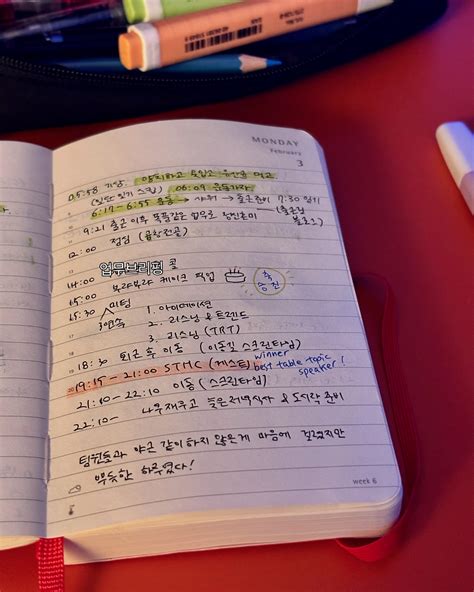 MONDAY
February
3
05:58 기상. 양치하고 유산균 먹고
(일단 일기 스킵) 06:09 운동가자
6:19-6:55 운동 → 샤워 → 출근준비 7:30 일기
9:21 출근 이후 똑같은 업무로
12:00 점심 (곱창전골)
14:00 업무브리핑 굿
15:00 부랴부랴 케이크 픽업
축 승진
15:30 미팅
연속
1. 아이메이션
2. 리스닝 & 트렌드
3. 리스닝 (TRT)
18:30 퇴근 후 이동 (이동길 스크린타임)
19:15-21:00 STMC (게스트) winner
best table topic
speaker!
21:10-22:10 이동 (스크린타임)
22:10- 나우재우고 늦은저녁식사 & 도시락 준비
팀원들과 야근 같이 하지 않은게 마음에 걸렸지만
뿌듯한 하루였다!
week 6